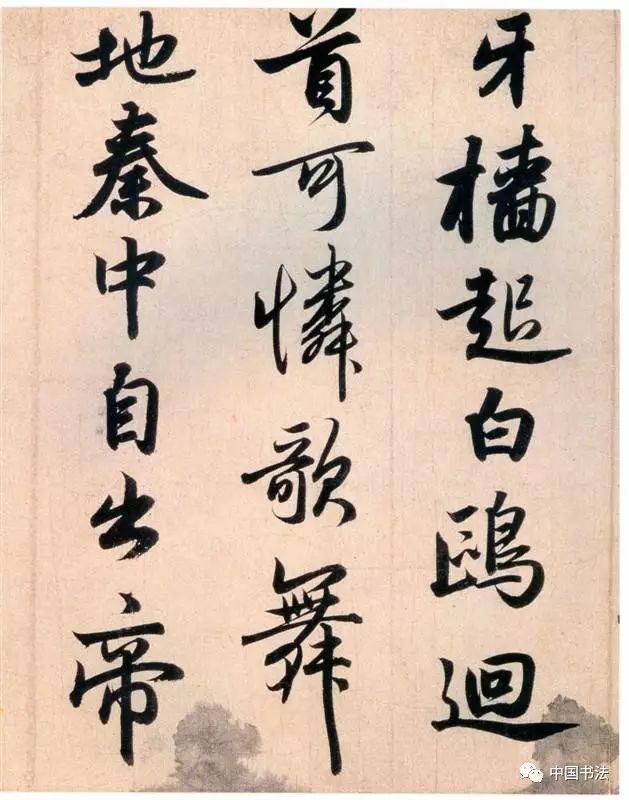 牙檣起白鷗迴
首可憐歌舞
地秦中自出帝
中国书法